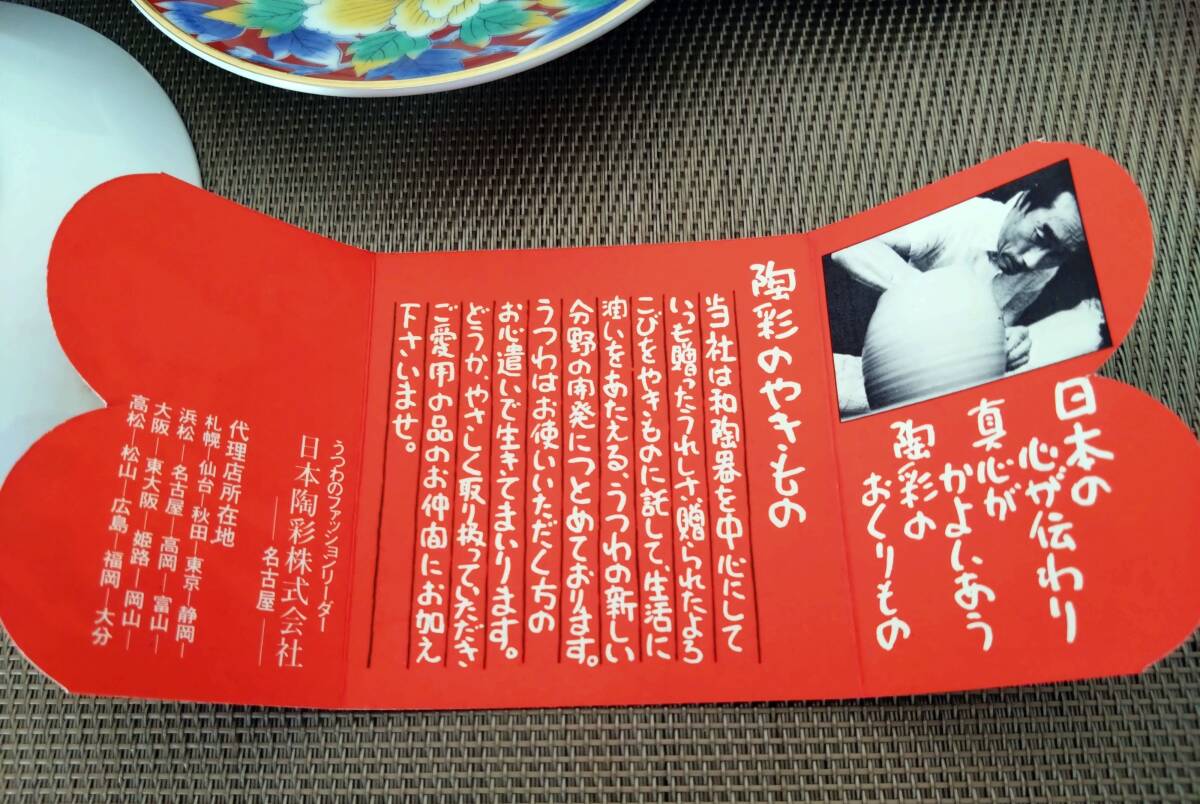 日本の
心が伝わり
真心が
かよいあう
陶彩の
おくりもの
陶彩のやきもの
当社は和陶器を中心にして
いつも贈ったうれしさ贈られたよろ
こびをやきものに託して、生活に
潤いをあたえる、うつわの新しい
分野の開発につとめております。
うつわはお使いいただく方の
お心遣いで生きてまいります。
どうか やさしく取り扱っていただき
ご愛用の品のお仲間にお加え
下さいませ。
うつわのファッションリーダー
日本陶彩株式会社
―名古屋―
代理店所在地
札幌―仙台―秋田―東京―静岡―
浜松―名古屋―高岡―富山―
大阪―東大阪―姫路―岡山―
高松―松山―広島―福岡―大分